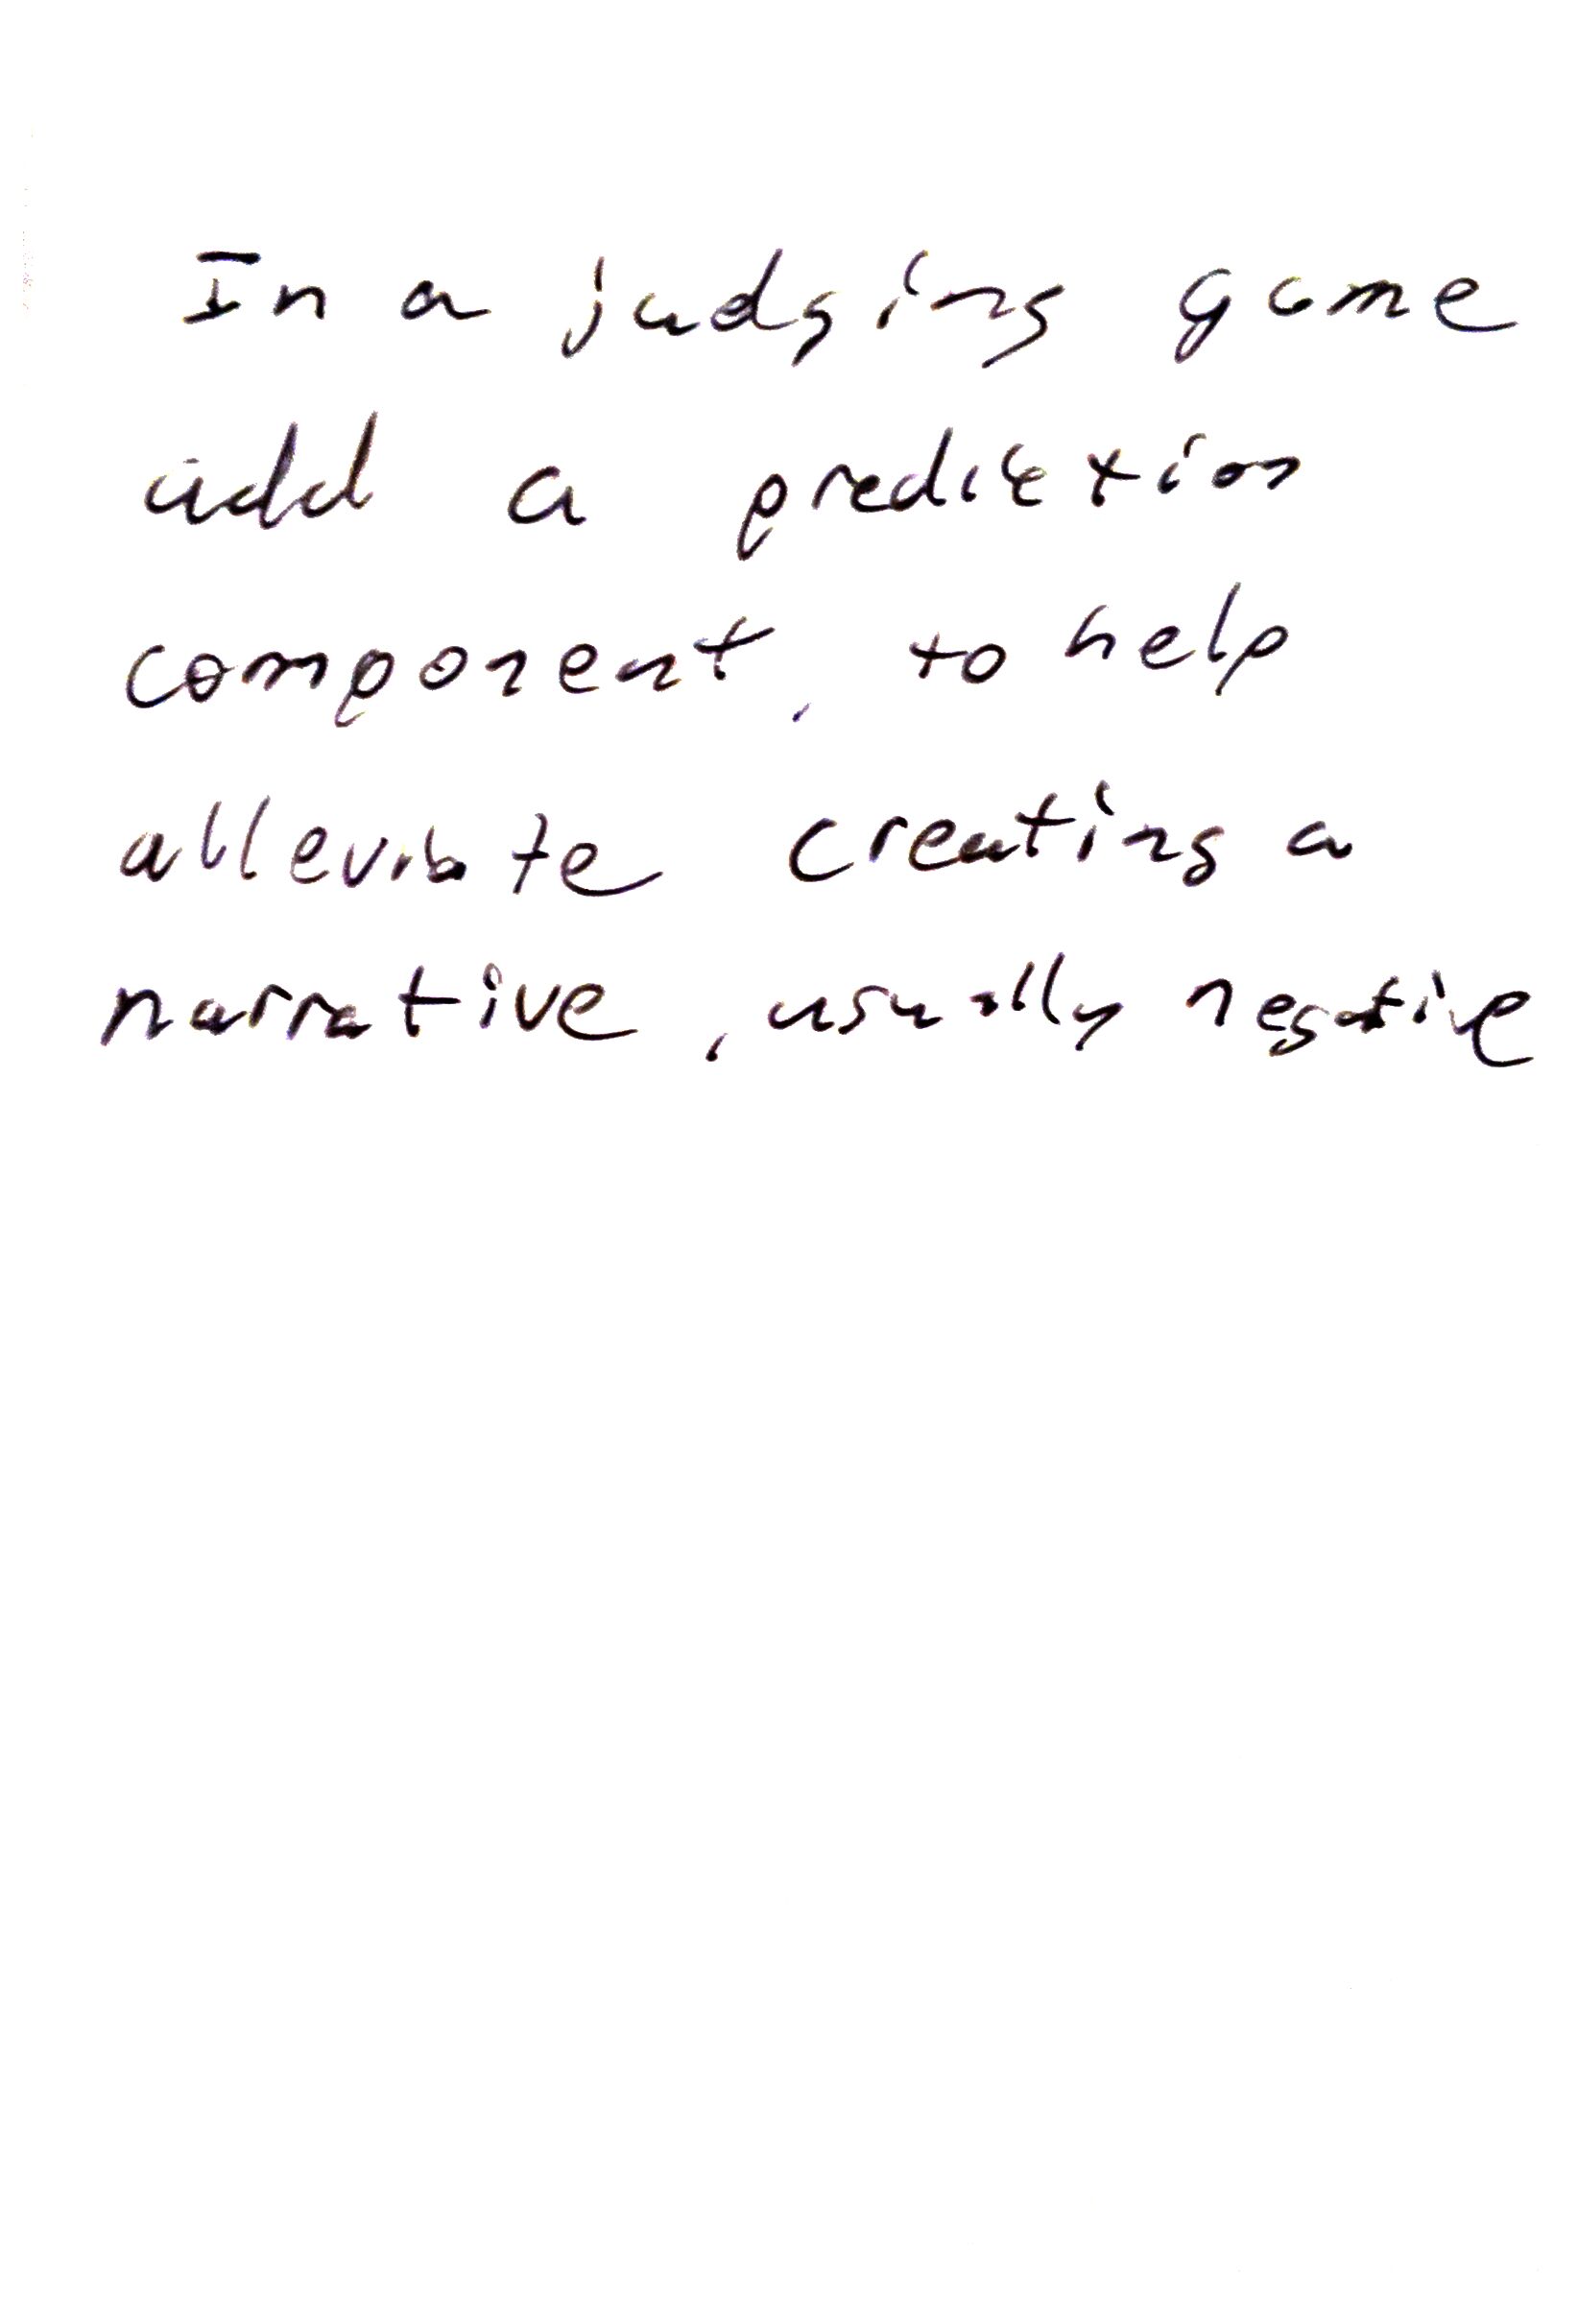 In a judging game
add a prediction
component, to help
alleviate creating a
narrative, usually negative